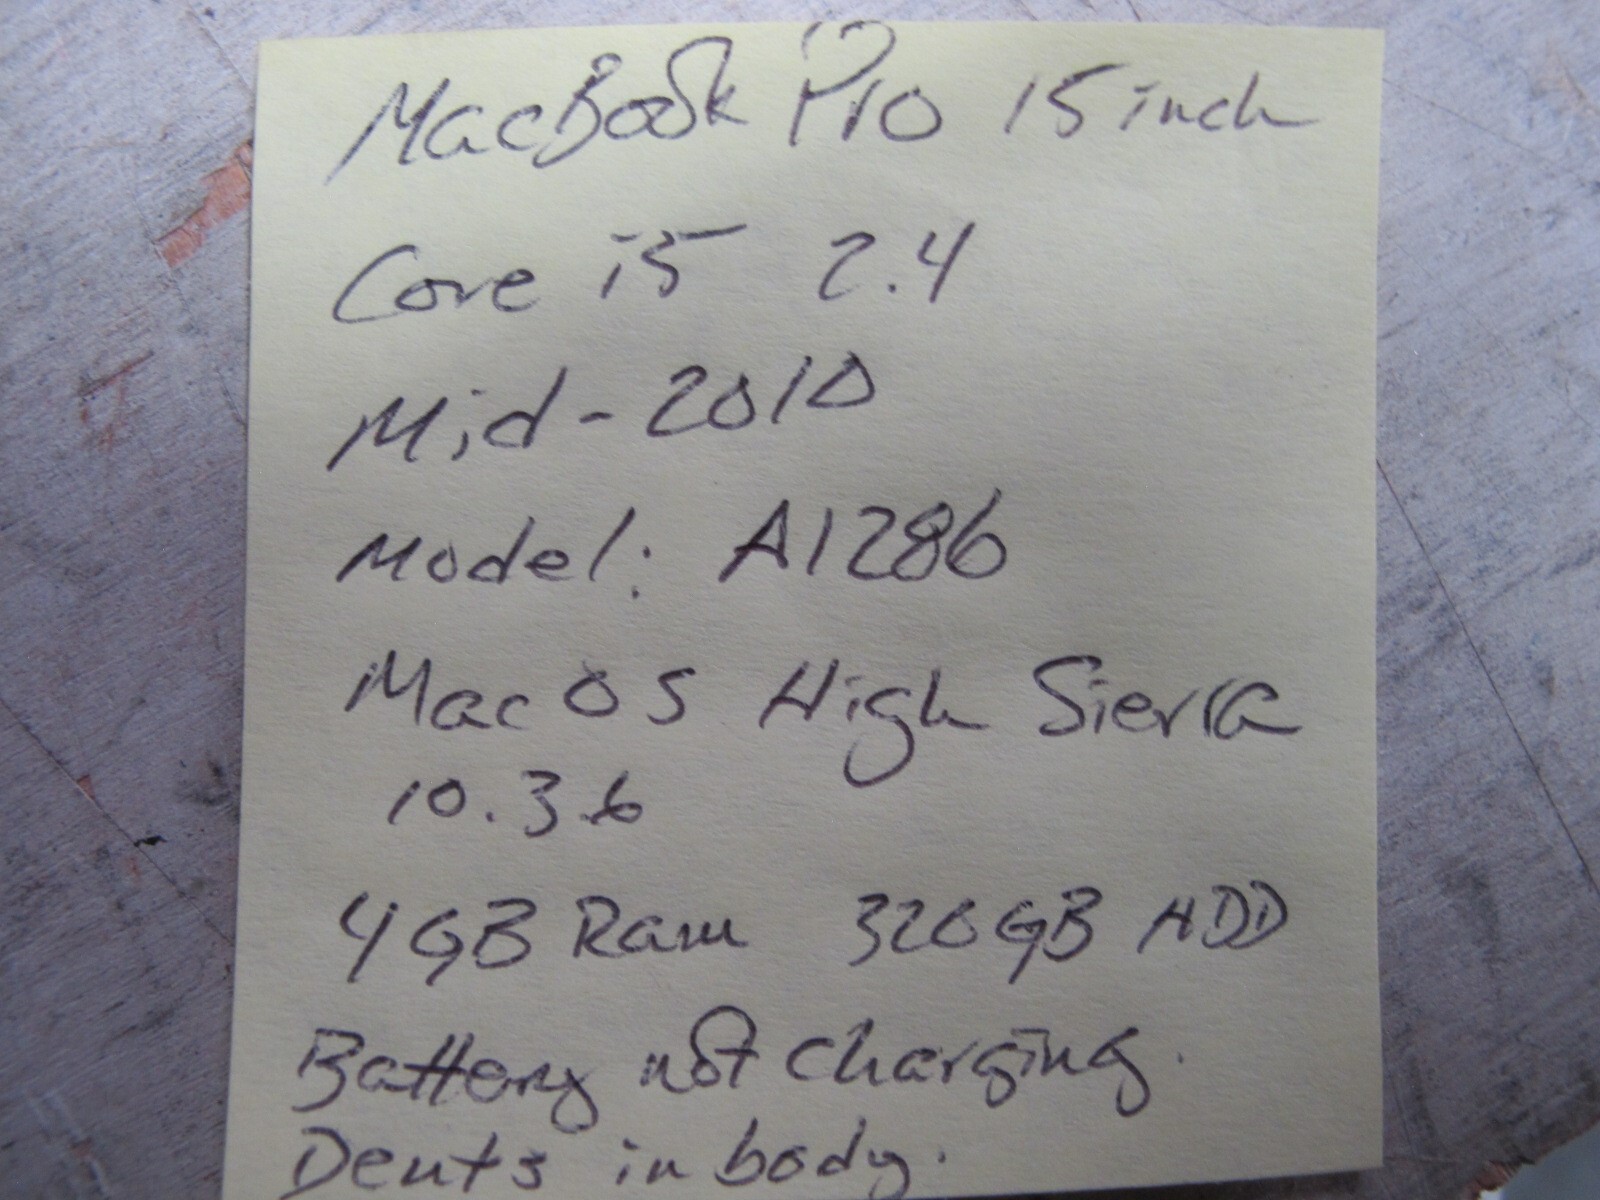 MacBook Pro 15 inch
Core i5 2.4
Mid-2010
Model: A1286
MacOS High Sierra
10.3.6
4GB Ram 320GB HDD
Battery not charging.
Dents in body.